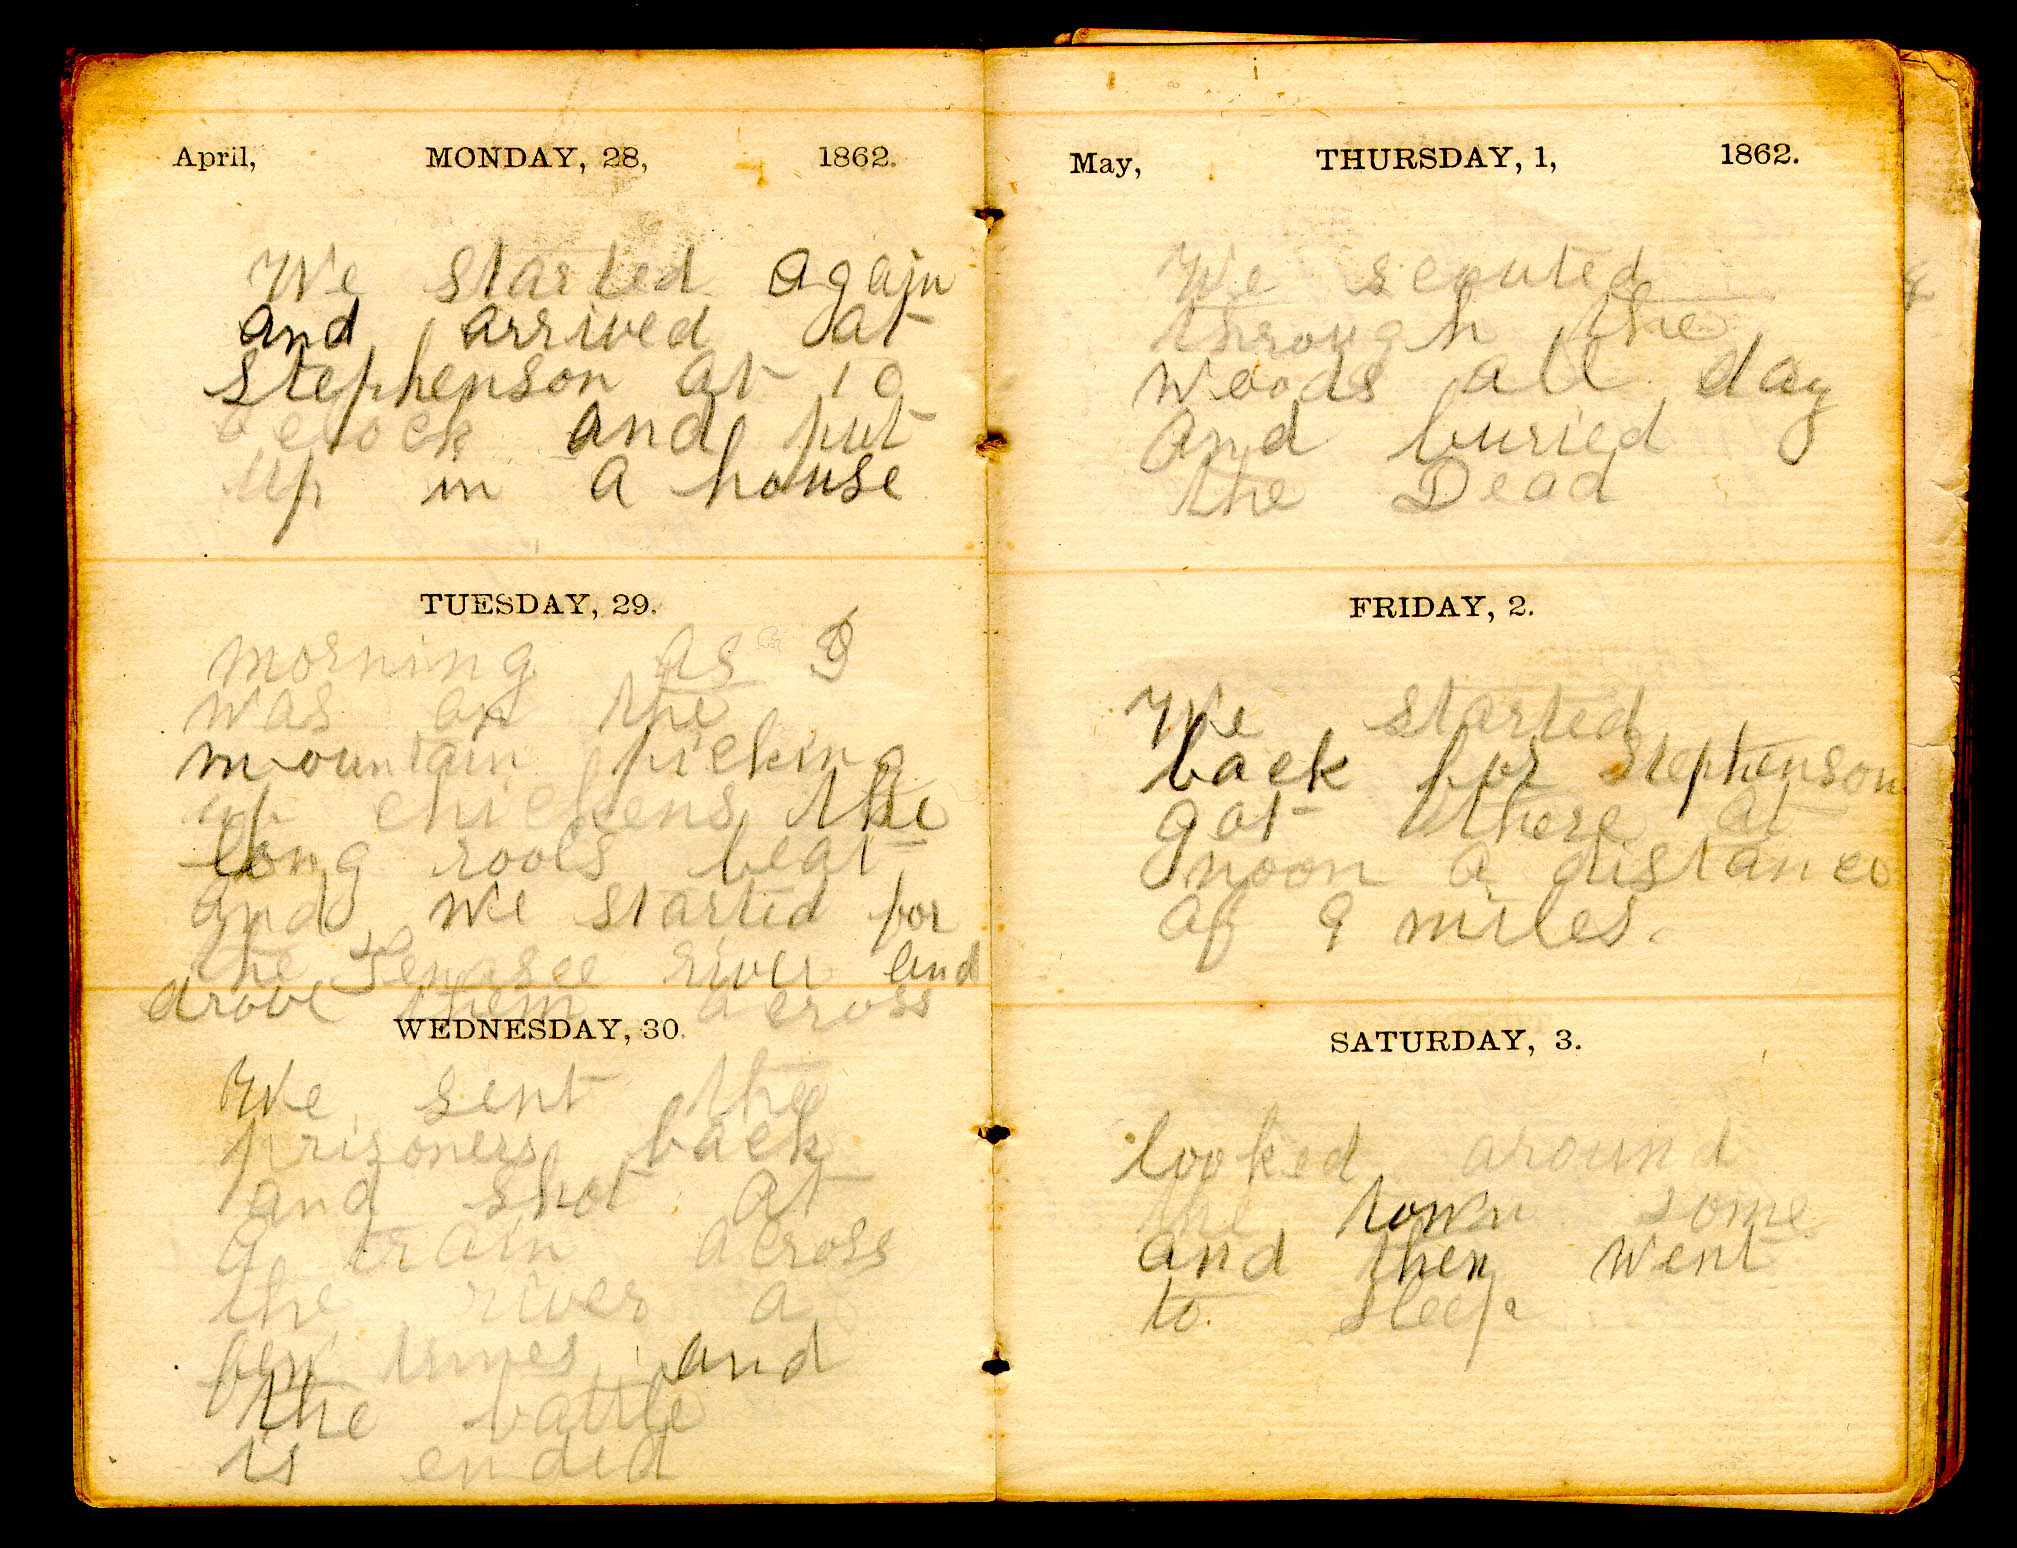 April, MONDAY, 28, 1862.
We started again
and arrived at
Stephenson at 10
oclock and put
up in a house
TUESDAY, 29.
morning as I
was on the
mountain picking
up chickens the
long rools beat
and we started for
the Tenasee river and
drove them across
WEDNESDAY, 30.
We sent the
prisoners back
and shot at
a train across
the river a
few times and
the battle
is ended
May, THURSDAY, 1, 1862.
We scouted
through the
woods all day
and buried
the Dead
FRIDAY, 2.
We started
back for Stephenson
got there at
noon a distance
of 9 miles.
SATURDAY, 3.
looked around
the town some
and then went
to sleep